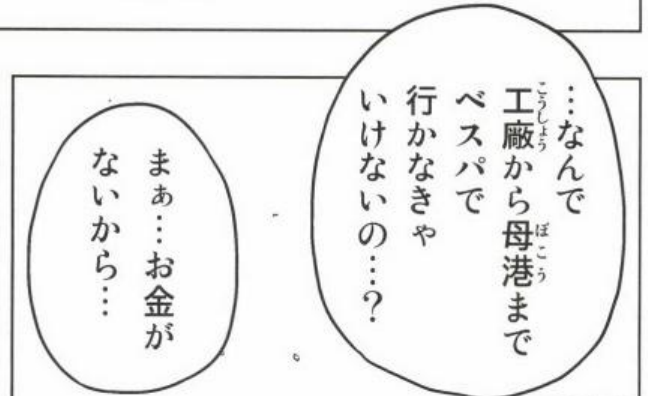 …なんで
工廠から母港まで
ベスパで
行かなきゃ
いけないの…？
まぁ…お金が
ないから…